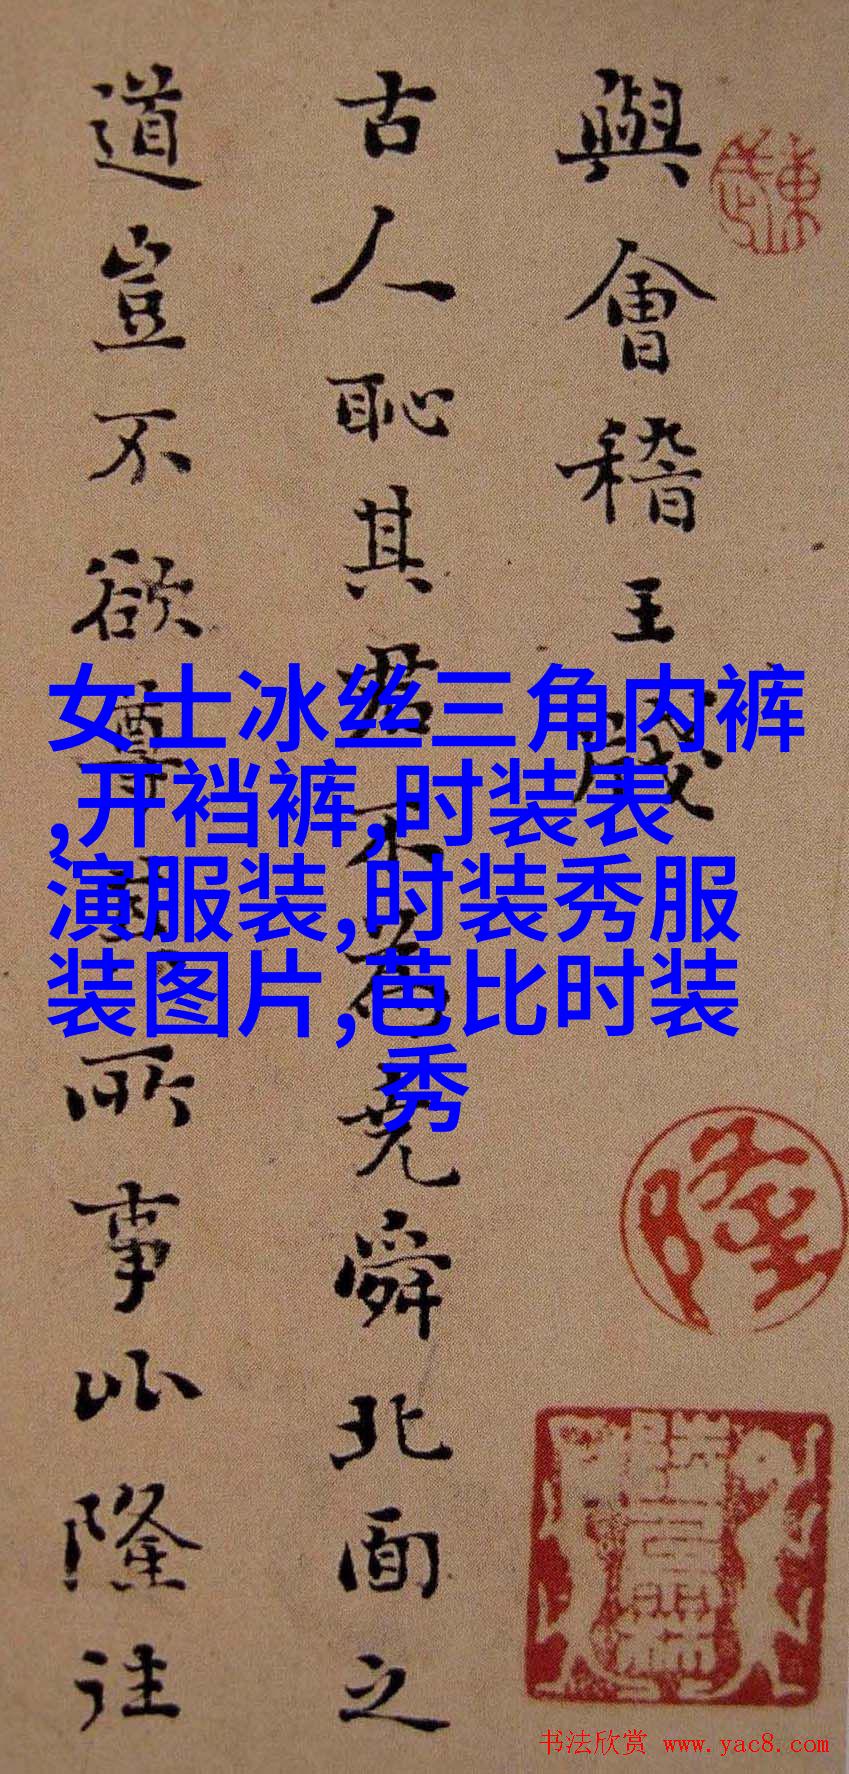 與會稽王牋
古人恥其君不為堯舜北面之
道豈不欲尊其所事比隆往
女士冰丝三角内裤
,开裆裤,时装表
演服装,时装秀服
装图片,芭比时装
秀
隆
书法欣赏 www.yac8.com